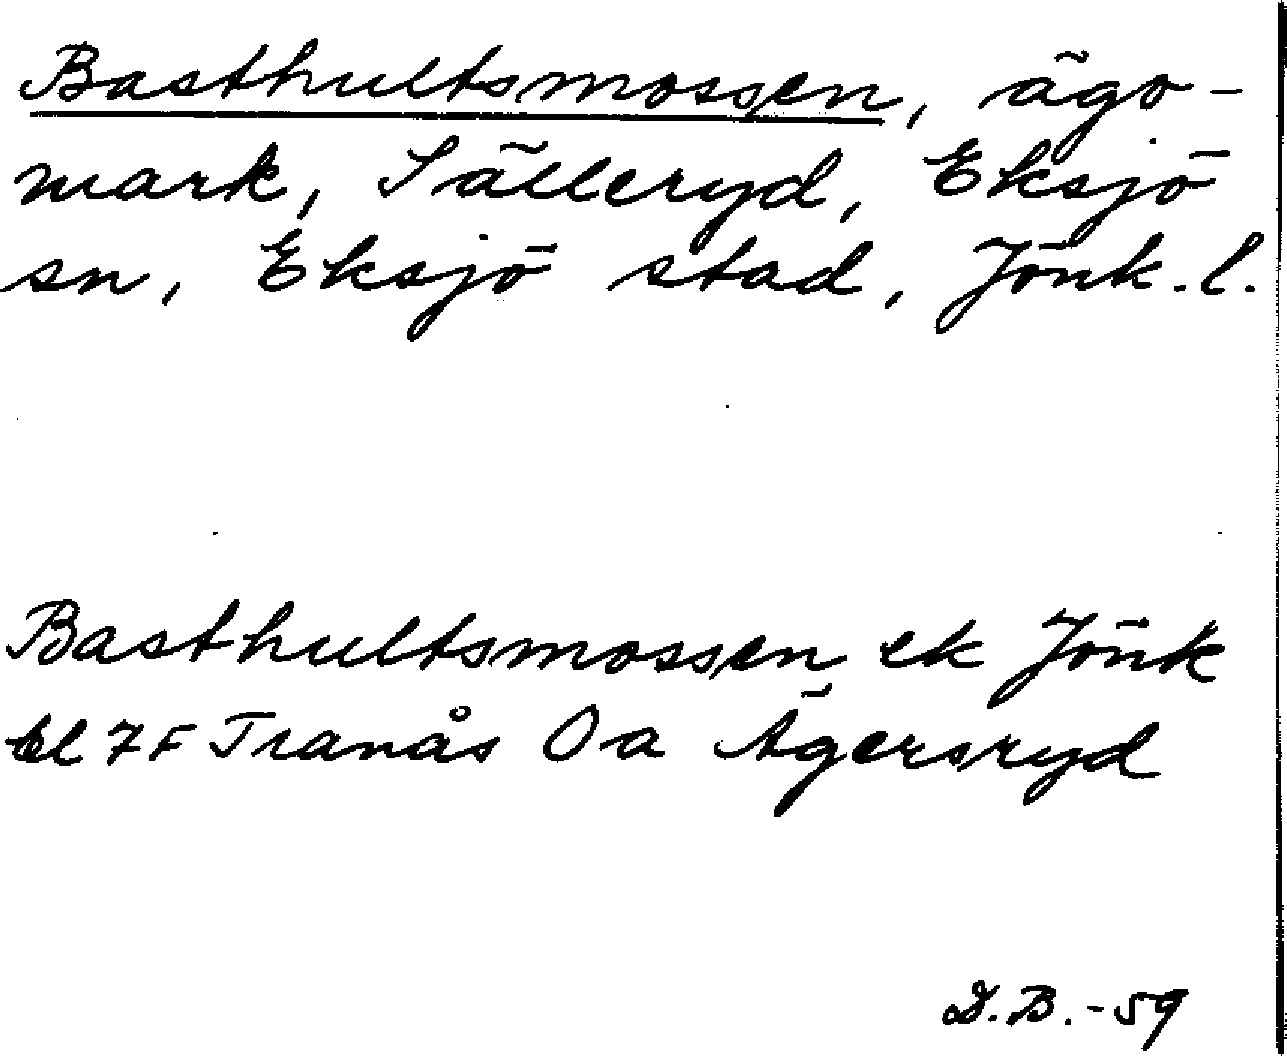 Basthultsmossen, ägo-
mark, Sälleryd, Eksjö
sn, Eksjö stad, Jönk.l.
Basthultsmossen ek Jönk
bl 7F Tranås Oa Ägersryd
D.B.-59